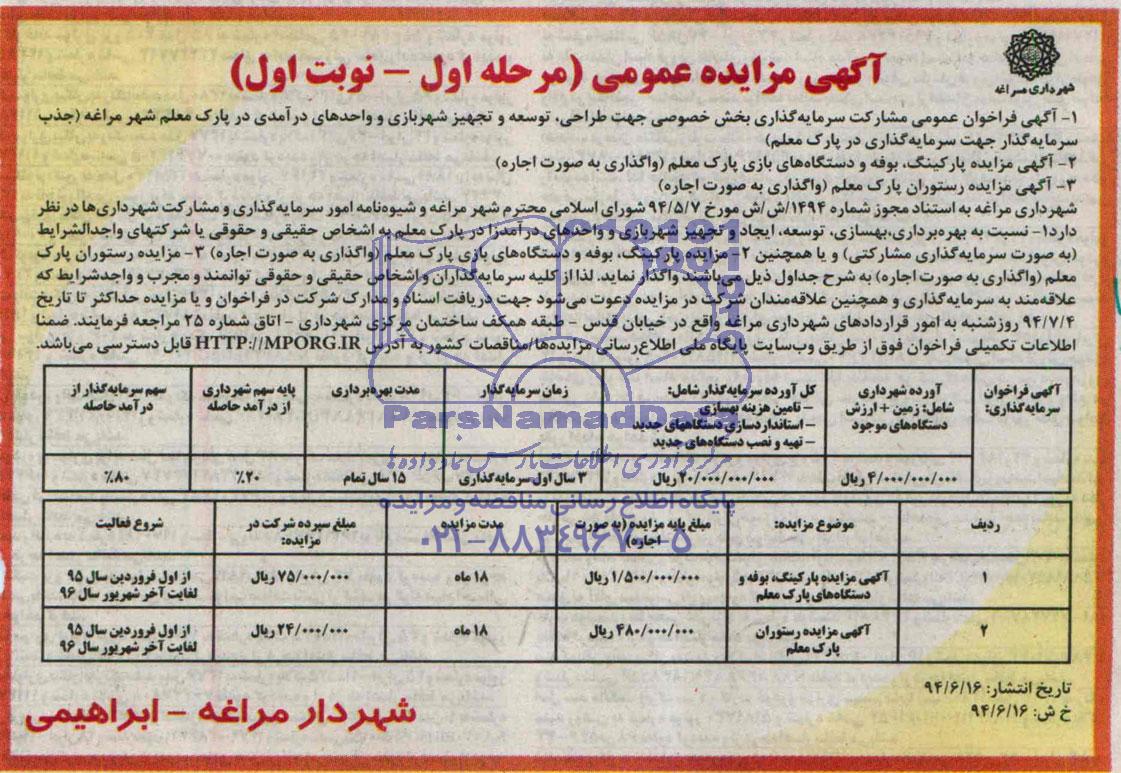 شهرداری مراغه
آگهی مزایده عمومی (مرحله اول – نوبت اول)
۱- آگهی فراخوان عمومی مشارکت سرمایه‌گذاری بخش خصوصی جهت طراحی، توسعه و تجهیز شهربازی و واحدهای درآمدی در پارک معلم شهر مراغه (جذب
سرمایه‌گذار جهت سرمایه‌گذاری در پارک معلم)
۲- آگهی مزایده پارکینگ، بوفه و دستگاه‌های بازی پارک معلم (واگذاری به صورت اجاره)
۳- آگهی مزایده رستوران پارک معلم (واگذاری به صورت اجاره)
شهرداری مراغه به استناد مجوز شماره ۱۴۹۴/ش/ش مورخ ۹۴/۵/۷ شورای اسلامی محترم شهر مراغه و شیوه‌نامه امور سرمایه‌گذاری و مشارکت شهرداری‌ها در نظر
دارد۱- نسبت به بهره‌برداری،بهسازی، توسعه، ایجاد و تجهیز شهربازی و واحدهای درآمدزا در پارک معلم به اشخاص حقیقی و حقوقی یا شرکتهای واجدالشرایط
(به صورت سرمایه‌گذاری مشارکتی) و یا همچنین ۲- مزایده پارکینگ، بوفه و دستگاه‌های بازی پارک معلم (واگذاری به صورت اجاره) ۳- مزایده رستوران پارک
معلم (واگذاری به صورت اجاره) به شرح جداول ذیل می‌باشند واگذار نماید. لذا از کلیه سرمایه‌گذاران و اشخاص حقیقی و حقوقی توانمند و مجرب و واجدشرایط که
علاقه‌مند به سرمایه‌گذاری و همچنین علاقه‌مندان شرکت در مزایده دعوت می‌شود جهت دریافت اسناد و مدارک شرکت در فراخوان و یا مزایده حداکثر تا تاریخ
۹۴/۷/۴ روزشنبه به امور قراردادهای شهرداری مراغه واقع در خیابان قدس - طبقه همکف ساختمان مرکزی شهرداری - اتاق شماره ۲۵ مراجعه فرمایند. ضمنا
اطلاعات تکمیلی فراخوان فوق از طریق وب‌سایت پایگاه ملی اطلاع‌رسانی مزایده‌ها/مناقصات کشور به آدرس HTTP://MPORG.IR قابل دسترسی می‌باشد.
آگهی فراخوان سرمایه‌گذاری: | آورده شهرداری شامل: زمین + ارزش دستگاه‌های موجود | کل آورده سرمایه‌گذار شامل: – تامین هزینه بهسازی – استانداردسازی دستگاههای جدید – تهیه و نصب دستگاه‌های جدید | زمان سرمایه‌گذار | مدت بهره‌برداری | پایه سهم شهرداری از درآمد حاصله | سهم سرمایه‌گذار از درآمد حاصله
۴/۰۰۰/۰۰۰/۰۰۰ ریال | ۲۰/۰۰۰/۰۰۰/۰۰۰ ریال | ۳ سال اول سرمایه‌گذاری | ۱۵ سال تمام | ۲۰٪ | ۸۰٪
ردیف | موضوع مزایده: | مبلغ پایه مزایده (به صورت اجاره) | مدت مزایده | مبلغ سپرده شرکت در مزایده: | شروع فعالیت
۱ | آگهی مزایده پارکینگ، بوفه و دستگاه‌های پارک معلم | ۱/۵۰۰/۰۰۰/۰۰۰ ریال | ۱۸ ماه | ۷۵/۰۰۰/۰۰۰ ریال | از اول فروردین سال ۹۵ لغایت آخر شهریور سال ۹۶
۲ | آگهی مزایده رستوران پارک معلم | ۴۸۰/۰۰۰/۰۰۰ ریال | ۱۸ ماه | ۲۴/۰۰۰/۰۰۰ ریال | از اول فروردین سال ۹۵ لغایت آخر شهریور سال ۹۶
تاریخ انتشار: ۹۴/۶/۱۶
خ ش: ۹۴/۶/۱۶
شهردار مراغه – ابراهیمی
ParsNamadData
مرکز فرآوری اطلاعات پارس نماد داده ها
پایگاه اطلاع رسانی مناقصه و مزایده
۰۲۱-۸۸۳۴۹۶۷۰-۵